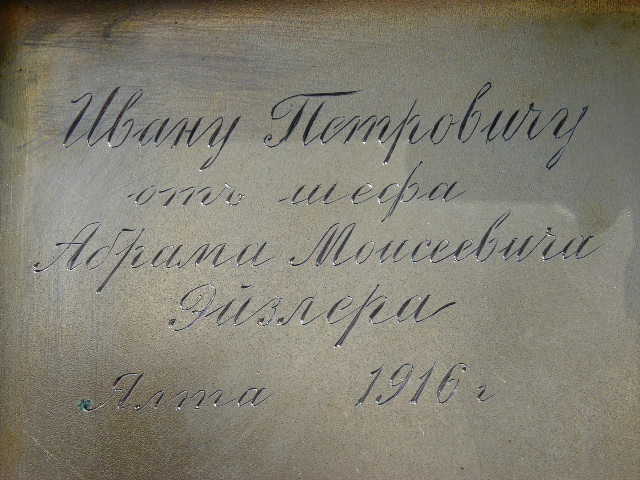 Ивану Петровичу
отъ шефа
Абрама Моисеевича
Эйзлера
Ялта 1916 г